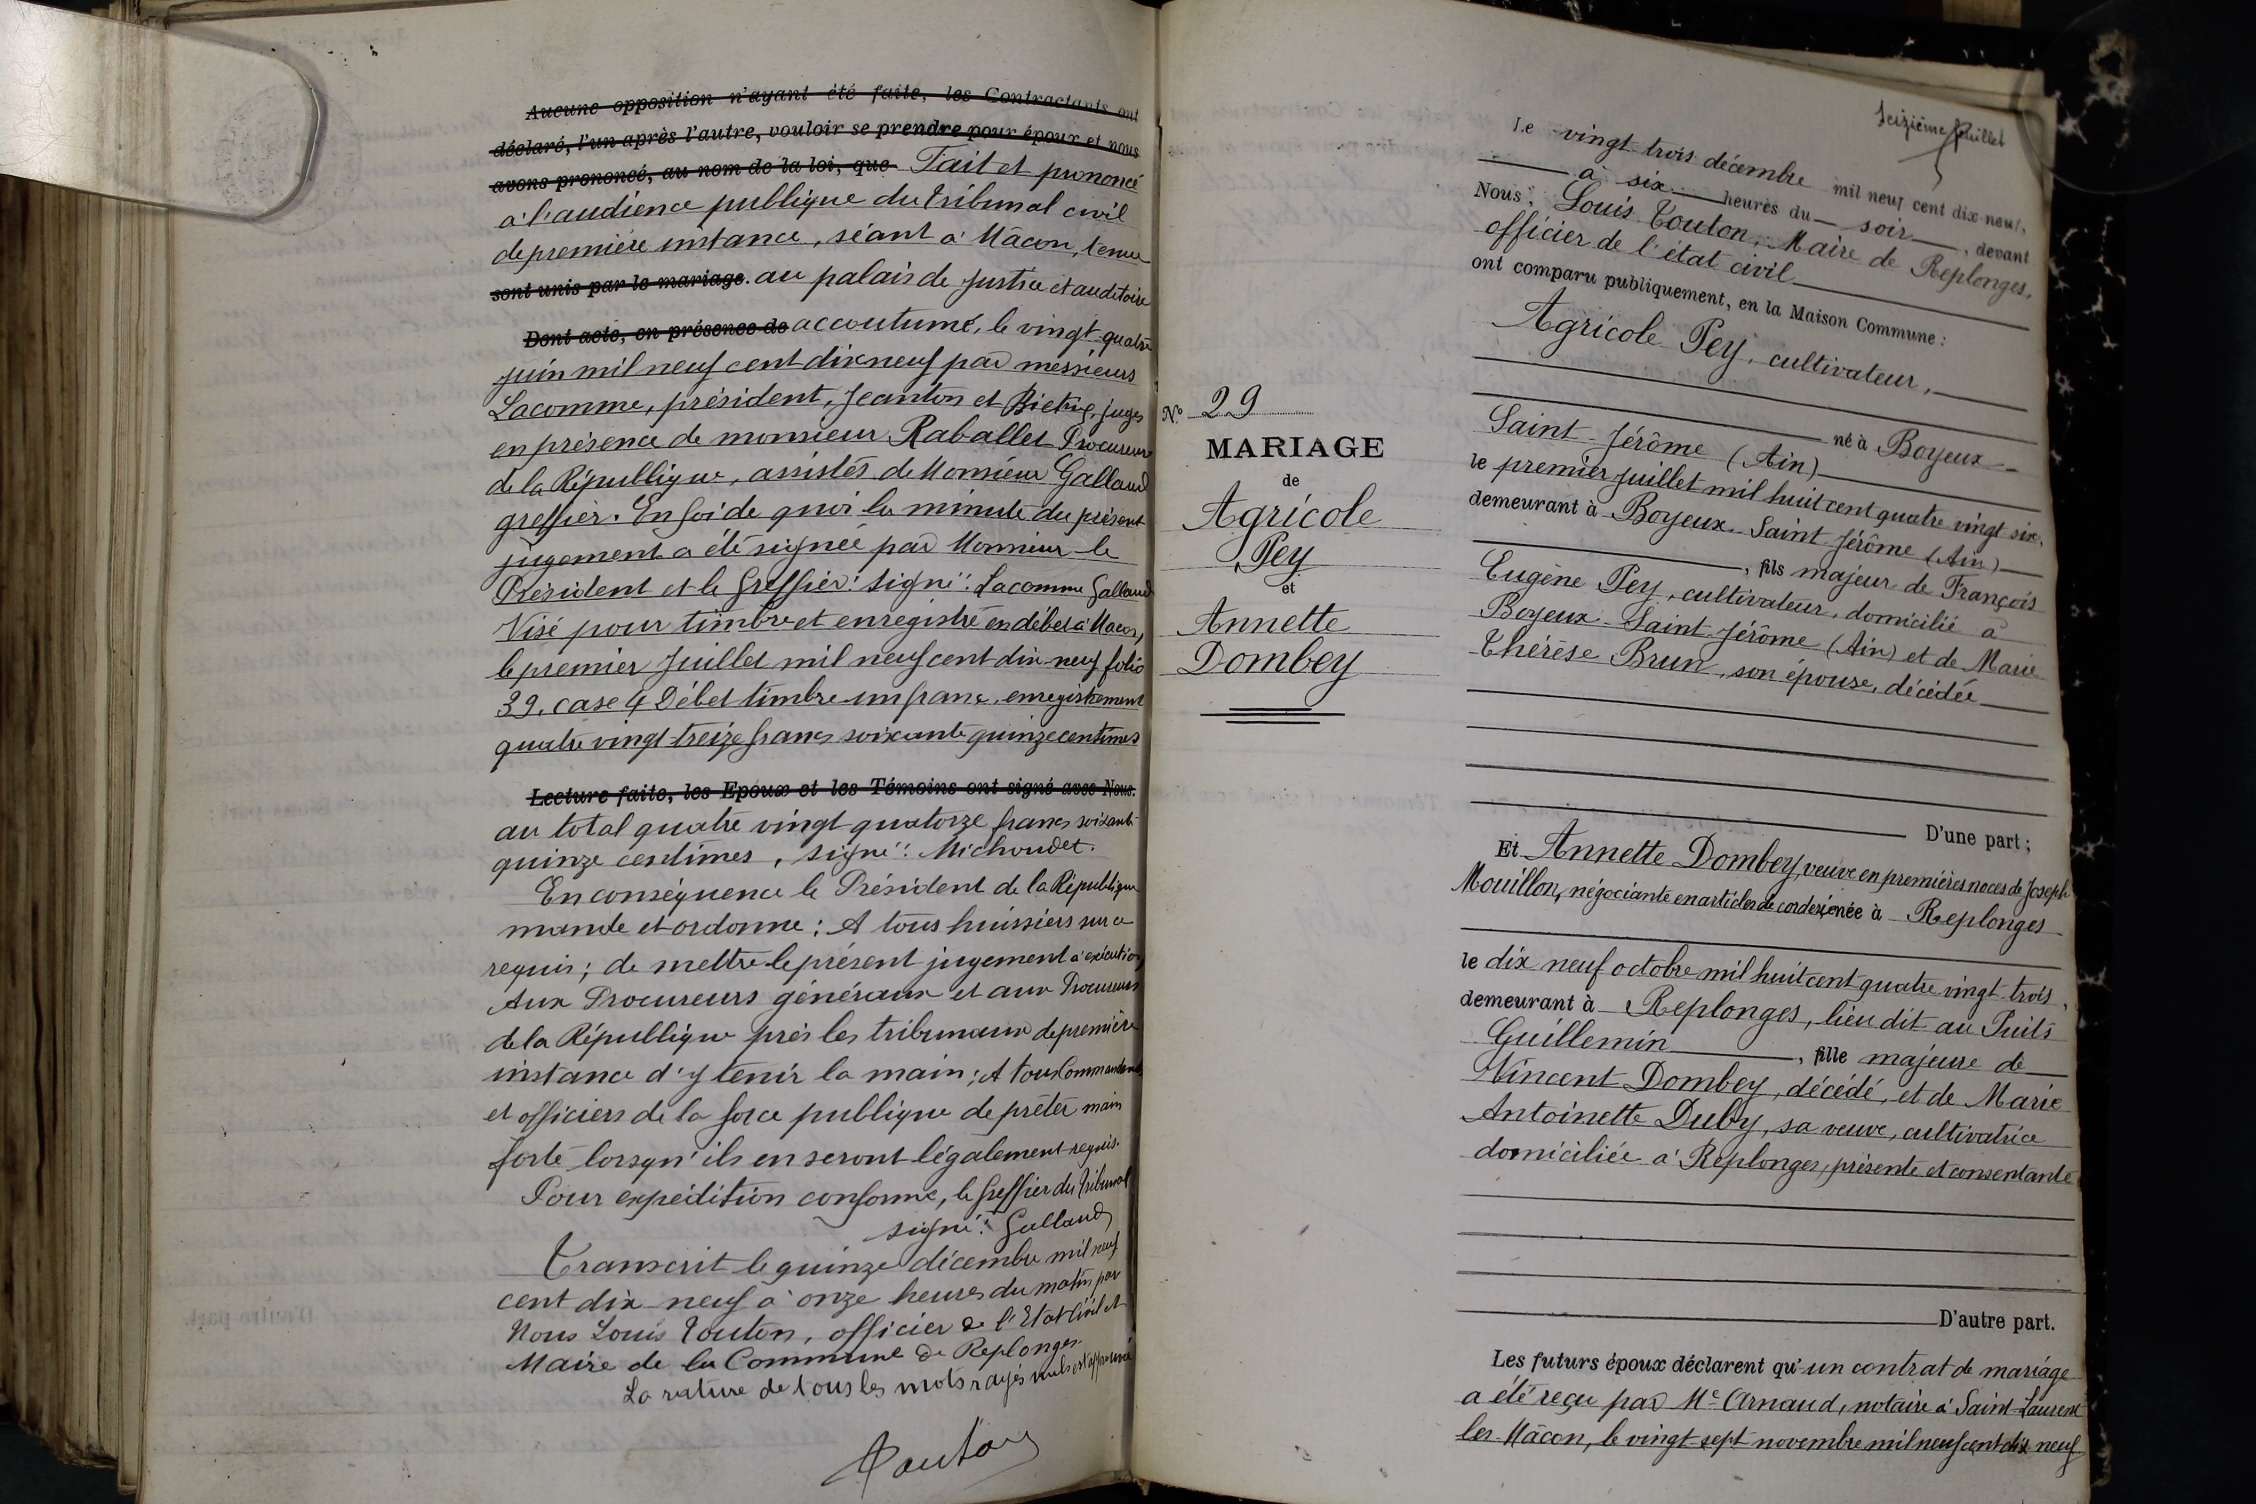 Aucune opposition n'ayant été faite, les Contractants ont
déclaré, l'un après l'autre, vouloir se prendre pour époux et nous
avons prononcé, au nom de la loi, que Fait et prononcé
à l'audience publique du tribunal civil
de première instance, séant à Mâcon, tenue
sont unis par le mariage. au palais de justice et auditoire
Dont acte, en présence de accoutumé, le vingt-quatre
juin mil neuf cent dix neuf par messieurs
Lacomme, président, Jeanton et Bietrix, juges
en présence de monsieur Raballet Procureur
de la République, assistés de Monsieur Galland
greffier. En foi de quoi la minute du présent
jugement a été signée par Monsieur le
Président et le Greffier: signé: Lacomme Galland
Visé pour timbre et enregistré en débet à Macon,
le premier Juillet mil neuf cent dix-neuf folio
39, case 4 Débet timbre un franc, enregistrement
quatre vingt treize francs soixante quinze centimes
Lecture faite, les Epoux et les Témoins ont signé avec Nous.
au total quatre vingt quatorze francs soixante
quinze centimes, signé: Michoudet.
En conséquence le Président de la République
mande et ordonne: A tous huissiers sur ce
requis; de mettre le présent jugement à exécution
Aux Procureurs généraux et aux Procureurs
de la République près les tribunaux de première
instance d'y tenir la main; A tous Commandants
et officiers de la force publique de prêter main
forte lorsqu'ils en seront légalement requis.
Pour expédition conforme, le Greffier du Tribunal
signé: Galland
Transcrit le quinze décembre mil neuf
cent dix-neuf à onze heures du matin par
Nous Louis Touton, officier de l'Etat Civil et
Maire de la Commune de Replonges.
La rature de tous les mots rayés nuls est approuvée
Touton
Nº 29
MARIAGE
de
Agricole
Pey
et
Annette
Dombey
seizième Juillet
Le vingt-trois décembre mil neuf cent dix-neuf,
à six heures du soir, devant
Nous: Louis Touton, Maire de Replonges,
officier de l'état civil
ont comparu publiquement, en la Maison Commune:
Agricole Pey, cultivateur,
né à Boyeux-
Saint-Jérôme (Ain)
le premier juillet mil huit cent quatre vingt six,
demeurant à Boyeux-Saint-Jérôme (Ain)
, fils majeur de François
Eugène Pey, cultivateur, domicilié à
Boyeux-Saint-Jérôme (Ain) et de Marie
Thérèse Brun, son épouse, décédée
D'une part;
Et Annette Dombey, veuve en premières noces de Joseph
Mouillon, négociante en articles de corderie, née à Replonges
le dix neuf octobre mil huit cent quatre vingt-trois,
demeurant à Replonges, lieu dit au Puits
Guillemin, fille majeure de
Vincent Dombey, décédé, et de Marie
Antoinette Duby, sa veuve, cultivatrice
domiciliée à Replonges, présente et consentante
D'autre part.
Les futurs époux déclarent qu'un contrat de mariage
a été reçu par Me Arnaud, notaire à Saint-Laurent
les-Mâcon, le vingt sept novembre mil neuf cent dix neuf